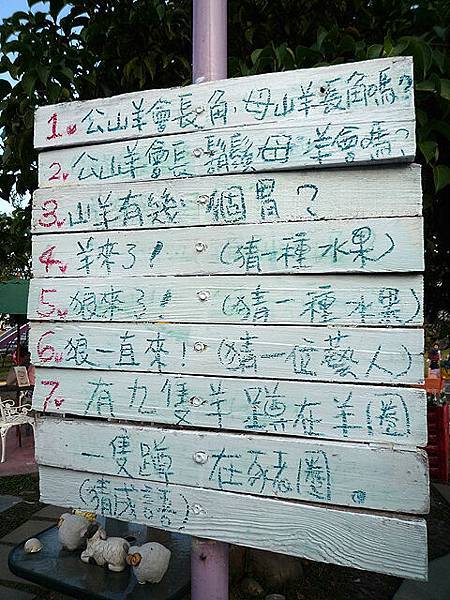 1. 公山羊會長角,母山羊長角嗎?
2. 公山羊會長鬍鬚母羊會嗎?
3. 山羊有幾個胃?
4. 羊來了!(猜一種水果)
5. 狼來了!(猜一種水果)
6. 狼一直來!(猜一位藝人)
7. 有九隻羊蹲在羊圈
一隻蹲在豬圈。
(猜成語)